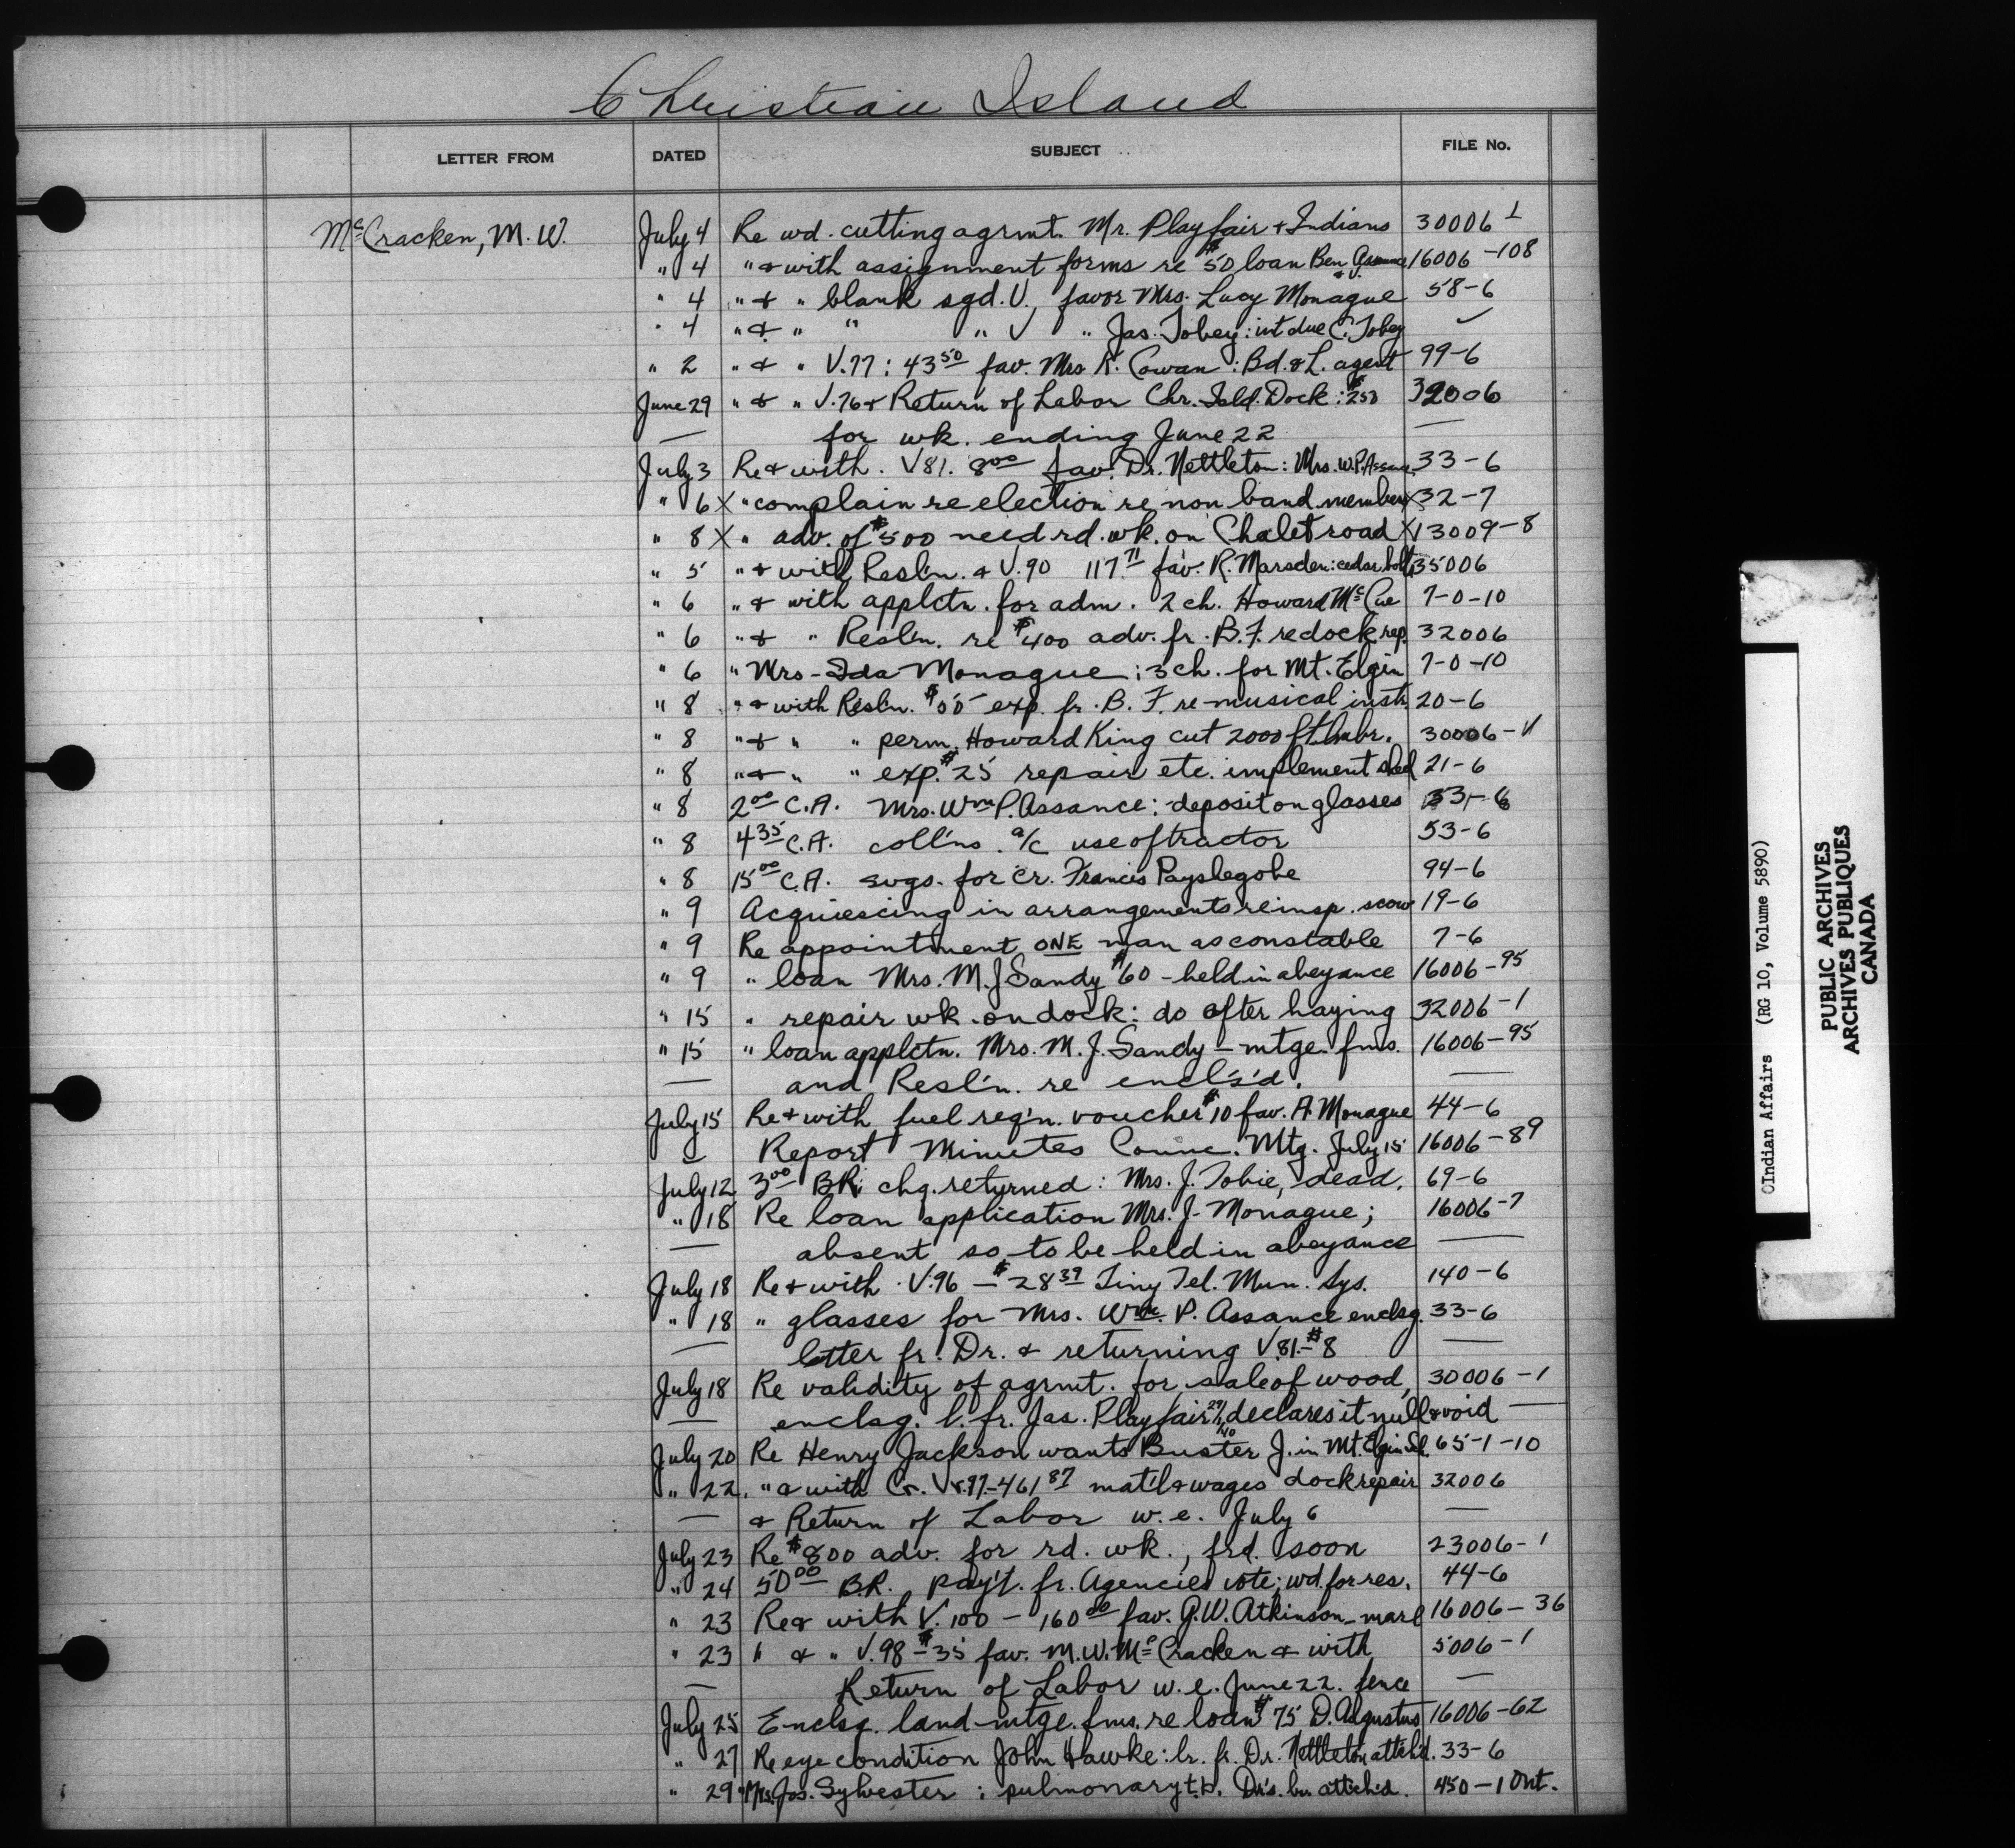 Christian Island
LETTER FROM DATED SUBJECT FILE No.
McCracken, M. W. July 4 Re wd. cutting agrmt. Mr. Playfair + Indians 30006 1
" 4 " + with assignment forms re $50 loan Ben 16006-108
" 4 " + " blank sgd. V., favor Mrs. Lucy Monague 58-6
" 4 " + " " " V " Jas. Tobey: int due C. Tobey ✓
" 2 " + " V.77: 43 50 fav. Mrs K. Cowan: Bd. & L. agent 99-6
June 29 " + " V.76 + Return of Labor Chr. Isld. Dock: 32006
— for wk. ending June 22 —
July 3 Re + with. V81. 8 00 fav. Dr. Nettleton: Mrs. W.P. Assance 33-6
" 6 X " complain re election re non band members X 32-7
" 8 X " adv. of $500 need rd. wk. on Chalet road X 13009-8
" 5 " + with Resl'n. & V.90 117 71 fav. R. Marsden: cedar bolts 35006
" 6 " + with applctn. for adm. 2 ch. Howard McCue 7-0-10
" 6 " + " Resl'n. re $400 adv. fr. B.F. re dock rep. 32006
" 6 " Mrs-Ida Monague: 3 ch. for Mt. Elgin 7-0-10
" 8 " + with Resl'n. exp. fr. B. F. re musical instr. 20-6
" 8 " + " " perm. Howard King cut 2000 ft. lmbr. 30006-11
" 8 " + " " exp. $25 repair etc. implement shed 21-6
" 8 2 00 C.A. Mrs. Wm P. Assance: deposit on glasses 33-6
" 8 4 35 C.A. coll'ns. a/c use of tractor 53-6
" 8 15 00 C.A. svgs. for cr. Francis Payslegobe 94-6
" 9 Acquiescing in arrangements re insp. scow 19-6
" 9 Re appointment ONE man as constable 7-6
" 9 " loan Mrs. M. J Sandy $60 - held in abeyance 16006-95
" 15 " repair wk. on dock: do after haying 32006-1
" 15 " loan applctn. Mrs. M. J. Sandy - mtge. fms. 16006-95
— and Resl'n. re encl's'd. —
July 15 Re + with fuel req'n. voucher $10 fav. A. Monague 44-6
— Report Minutes Counc. Mtg. July 15 16006-89
July 12 3 00 BR. chq. returned: Mrs. J. Tobie, dead. 69-6
" 18 Re loan application Mrs. J. Monague; 16006-7
— absent so to be held in abeyance —
July 18 Re + with V.96 - $28 39 Tiny Tel. Mun. Sys. 140-6
" 18 " glasses for Mrs. Wm. P. Assance enclsg. 33-6
— letter fr. Dr. & returning V.81-$8 —
July 18 Re validity of agrmt. for sale of wood, 30006-1
— enclsg. l. fr. Jas. Playfair declares it null & void —
July 20 Re Henry Jackson wants Buster J. in Mt. Elgin Scl. 65-1-10
" 22. " & with Cr. Vr. 97-461 87 mat'l & wages dock repair 32006
— & Return of Labor w. e. July 6 —
July 23 Re $800 adv. for rd. wk., frd. soon 23006-1
" 24 50 00 BR. pay't. fr. Agencies vote; wd. for res. 44-6
" 23 Re & with V. 100 - 160 00 fav. G.W. Atkinson - mare 16006-36
" 23 " & " V.98 - $35 fav. M. W. McCracken & with 5006-1
— Return of Labor w. e. June 22. fence —
July 25 Enclsg. land mtge. fms. re loan $75 D. Adgustus 16006-62
" 27 Re eye condition John Hawke: lr. fr. Dr. Nettleton attch'd. 33-6
" 29 " Mrs. Jos. Sylvester: pulmonary t.b. Dr's. lr. attch'd. 450-1 Ont.
©Indian Affairs (RG 10, Volume 5890)
PUBLIC ARCHIVES
ARCHIVES PUBLIQUES
CANADA